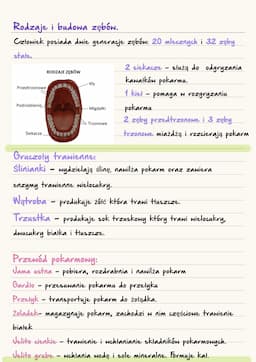 Rodzaje i budowa zębów.
Człowiek posiada dwie generacje zębów 20 mlecznych i 32 zęby
stałe.
RODZAJE ZĘBÓW
Kły
Przedtrzonowe
Podniebienie
Migdałki
Trzonowe
Siekacze
2 siekacze - służą do odgryzania
kawałków pokarmu.
1 kieł - pomaga w rozgryzaniu
pokarmu
2 zęby przedtrzonowe i 3 zęby
trzonowe miażdżą i rozcierają pokarm
Gruczoły trawienne:
Ślinianki - wydzielają ślinę, nawilża pokarm oraz zawiera
enzymy trawienne wielocukry.
Wątroba - produkuje żółć która trawi tłuszcze.
Trzustka - produkuje sok trzuskowy który trawi wielocukry,
dwucukry białka i tłuszcze.
Przewód pokarmowy:
Jama ustna - pobiera, rozdrabnia i nawilża pokarm
Gardło - przesuwanie pokarmu do przełyku
Przełyk - transportuje pokarm do żołądka.
Żołądek- magazynuje pokarm, zachodzi w nim częściowe trawienie
białek
Jelito cienkie - trawienie i wchłanianie składników pokarmowych.
Jelito grube - wchłania wodę i sole mineralne. Formuje kał.